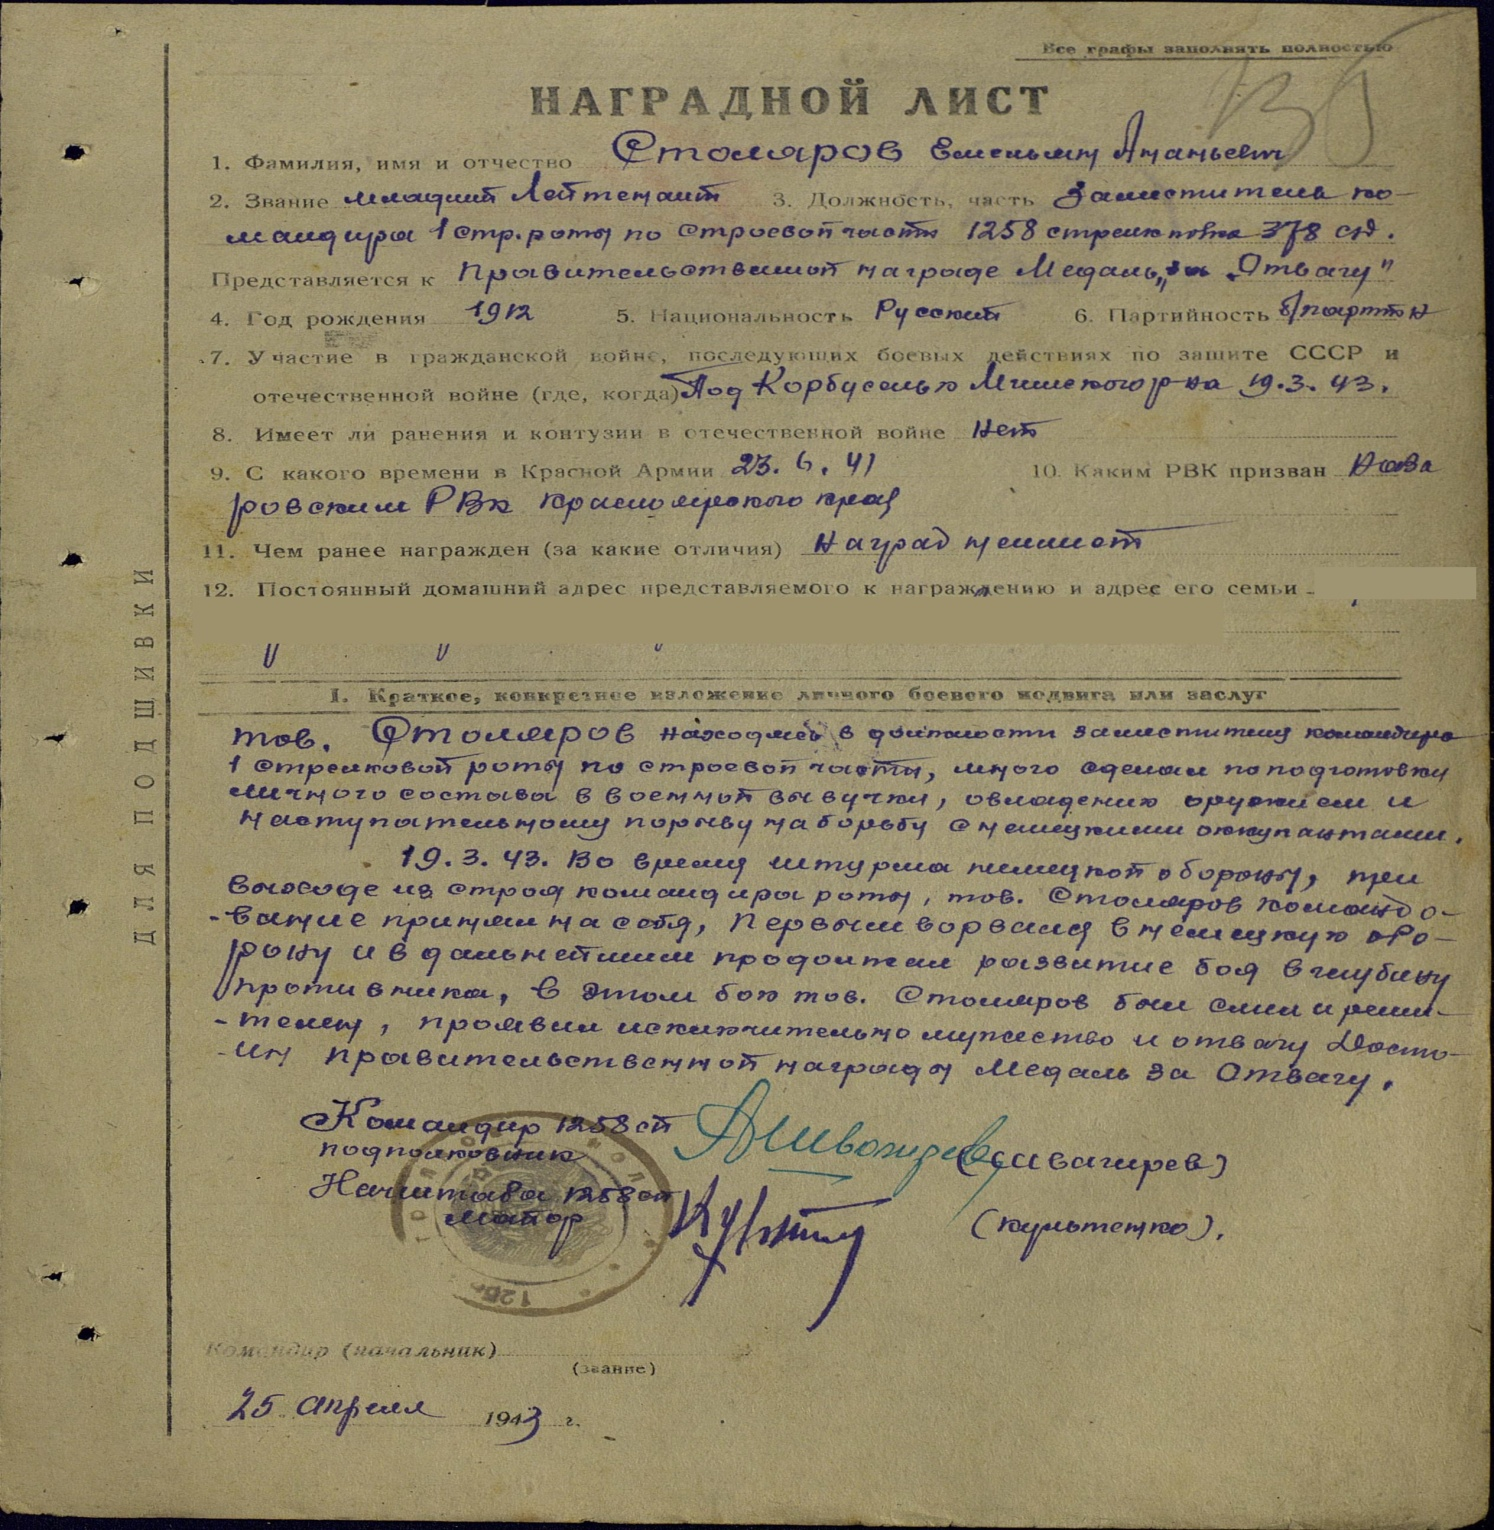 Все графы заполнять полностью
НАГРАДНОЙ ЛИСТ
1. Фамилия, имя и отчество Столяров Емельян Ананьевич
2. Звание младший Лейтенант 3. Должность, часть Заместитель ко-
мандира 1 стр. роты по строевой части 1258 стрелк полка 378 сд.
Представляется к правительственной награде Медаль „за Отвагу"
4. Год рождения 1912 5. Национальность Русский 6. Партийность б/партийн
7. Участие в гражданской войне, последующих боевых действиях по защите СССР и
отечественной войне (где, когда) Под Корбусель Мгинского р-на 19.3.43.
8. Имеет ли ранения и контузии в отечественной войне Нет
9. С какого времени в Красной Армии 23.6.41 10. Каким РВК призван
ровским РВК Красноярского края
11. Чем ранее награжден (за какие отличия) Наград не имеет
12. Постоянный домашний адрес представляемого к награждению и адрес его семьи -
" " "
ДЛЯ ПОДШИВКИ
I. Краткое, конкретное изложение личного боевого подвига или заслуг
тов. Столяров находясь в должности заместителя командира
1 стрелковой роты по строевой части, много сделал по подготовки
личного состава в военной выучки, овладению оружием и
наступательному порыву на борьбу с немецкими оккупантами.
19.3.43. Во время штурма немецкой обороны, при
выходе из строя командира роты, тов. Столяров командо-
-вание принял на себя, первым ворвался в немецкую обо-
рону и в дальнейшем продолжал развитие боя в глубину
противника, в этом бою тов. Столяров был смел и реши-
-телен, проявил исключительно мужество и отвагу Досто-
-ин правительственной награды Медаль за Отвагу.
Командир 1258 сп
подполковник
Начштаба 1258 сп
майор
Командир (начальник)
(звание)
25 апреля 1943 г.